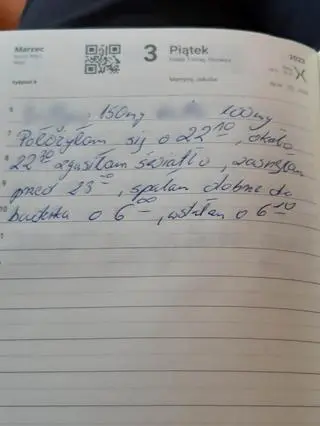 Marzec
3 Piątek
2023
6 150mg 100mg
7 Położyłam się o 22 10, około
8 22 30 zgasiłam światło, zasnęłam
9 przed 23 00, spałam dobrze do
10 budzika o 6 00, wstałam o 6 10